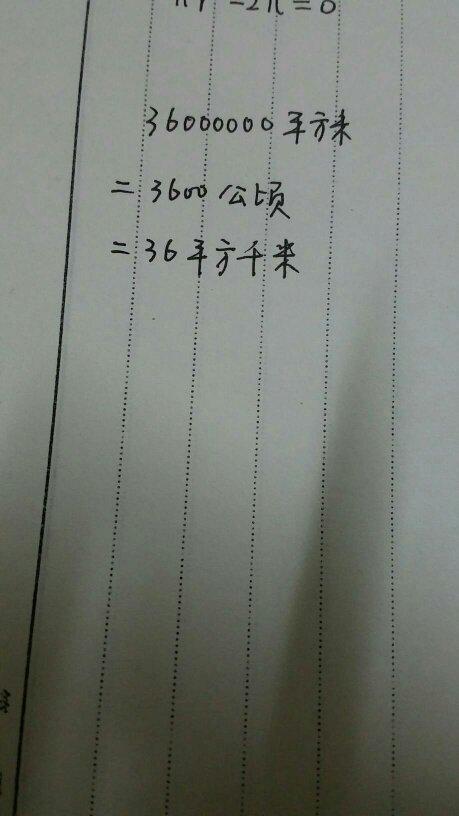 36000000平方米
=3600公顷
=36平方千米